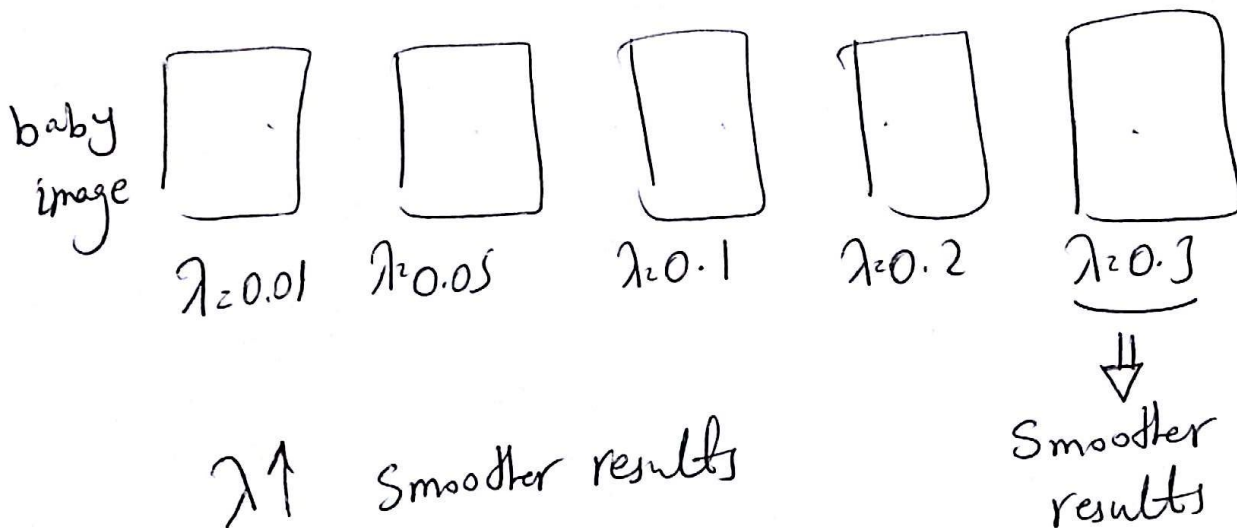 baby
image
λ=0.01 λ=0.05 λ=0.1 λ=0.2 λ=0.3
⇓
λ↑ Smoother results
Smoother
results